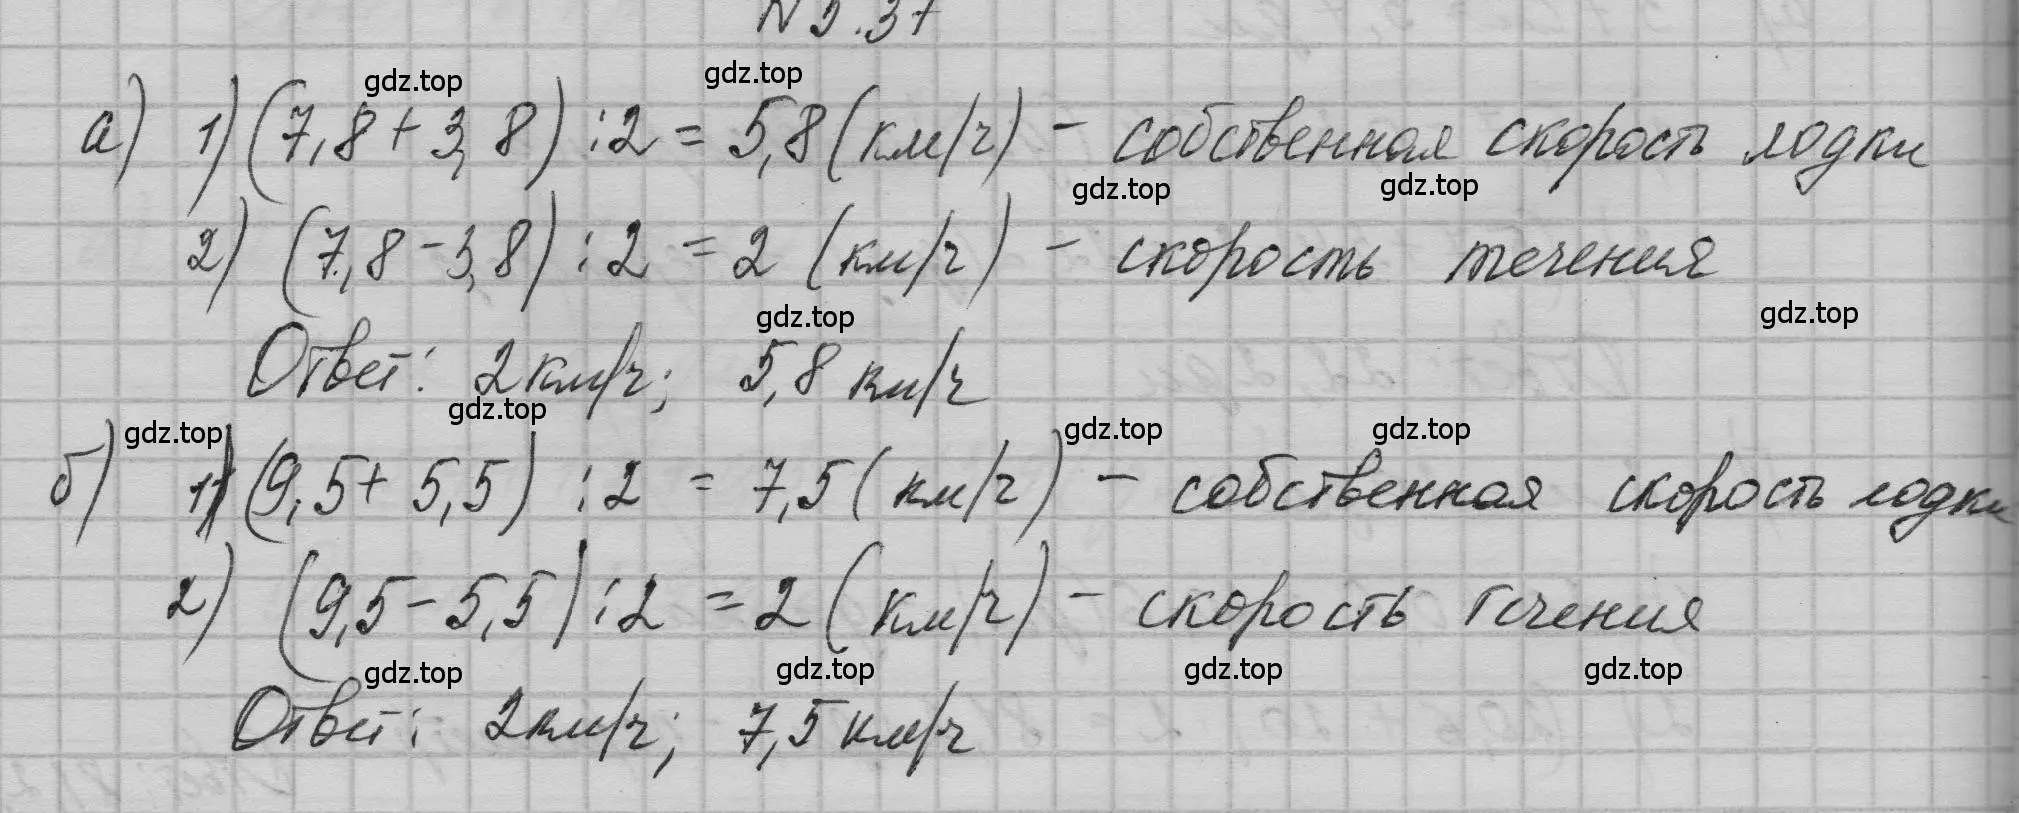 № 5.37
gdz.top gdz.top
а) 1) (7,8 + 3,8) : 2 = 5,8 (км/ч) – собственная скорость лодки
gdz.top gdz.top
2) (7,8 – 3,8) : 2 = 2 (км/ч) – скорость течения
gdz.top gdz.top
Ответ: 2 км/ч; 5,8 км/ч
gdz.top gdz.top gdz.top gdz.top
б) 1) (9,5 + 5,5) : 2 = 7,5 (км/ч) – собственная скорость лодки
2) (9,5 – 5,5) : 2 = 2 (км/ч) – скорость течения
gdz.top gdz.top gdz.top gdz.top
Ответ: 2 км/ч; 7,5 км/ч